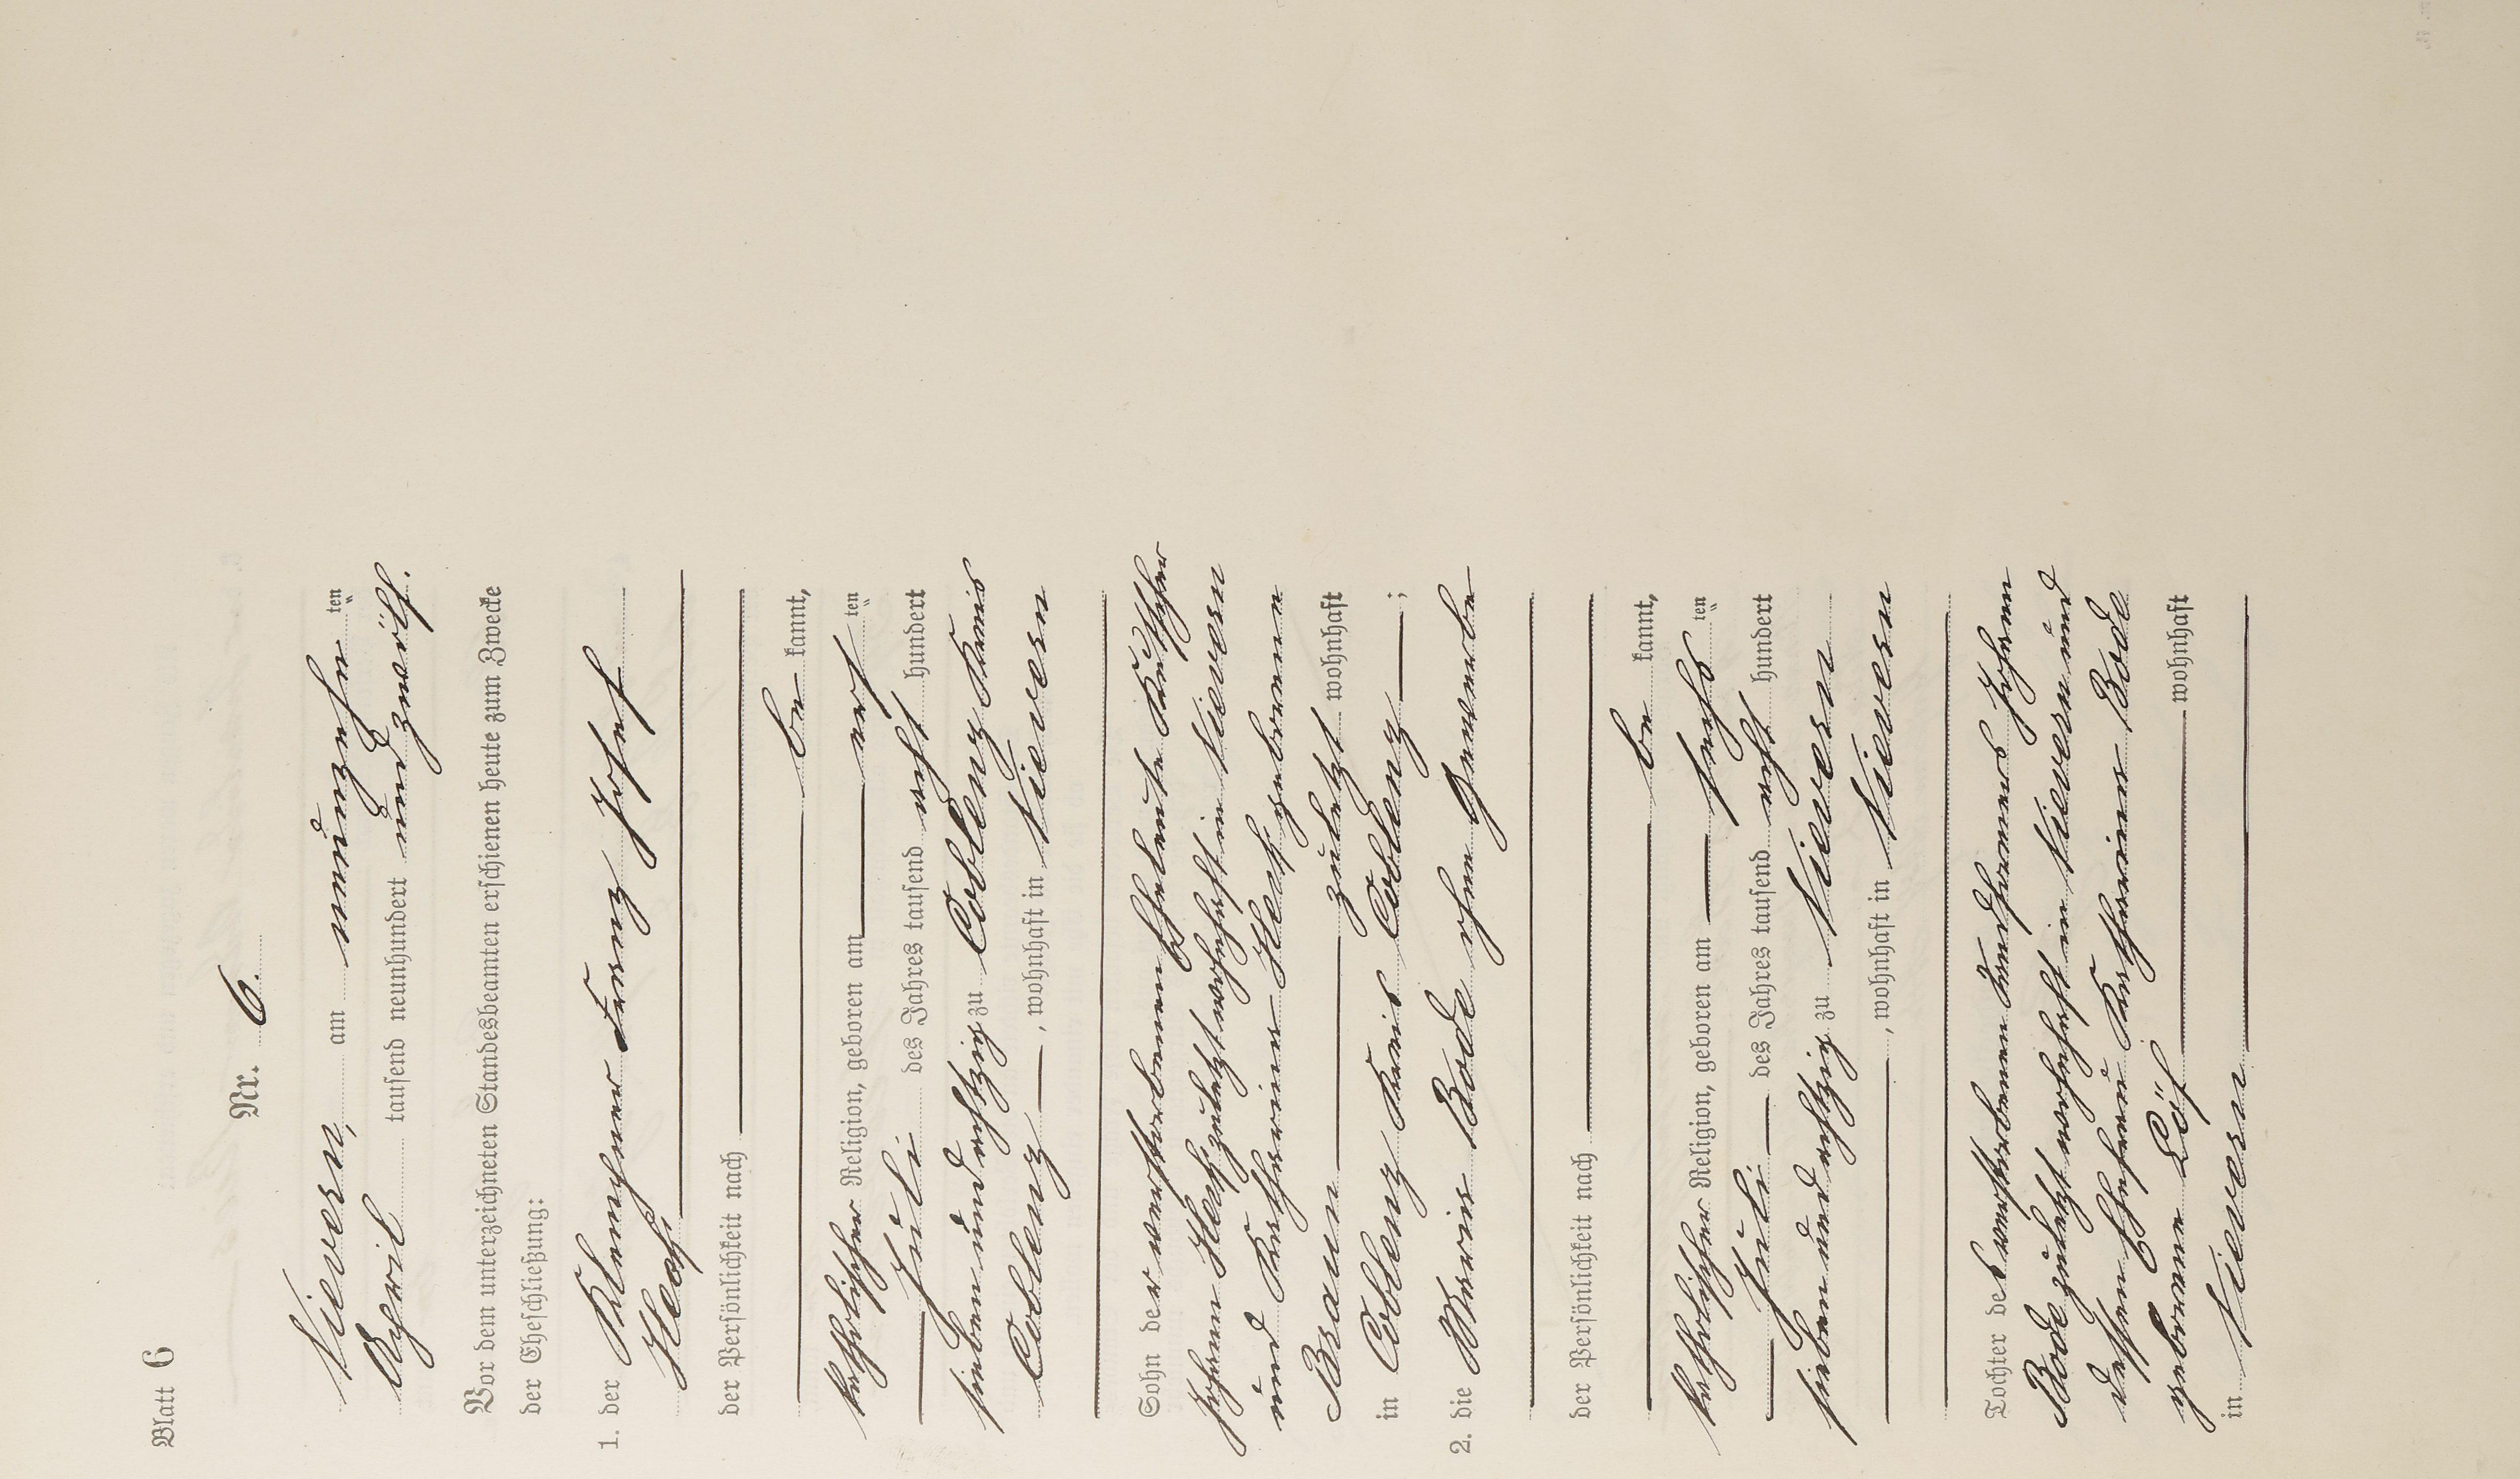 Blatt 6
Nr. 6.
Nievern, am neunzehn ten
April tausend neunhundert und zwölf.
Vor dem unterzeichneten Standesbeamten erschienen heute zum Zwecke
der Eheschließung:
1. der Klempner Franz Josef
Heck
der Persönlichkeit nach
be kannt,
katholischer Religion, geboren am acht ten
Juli des Jahres tausend acht hundert
sieben und achtzig zu Coblenz Kreis
Coblenz, wohnhaft in Nievern
Sohn der verstorbenen Eheleute
Johann Heck zuletzt wohnhaft in Nievern
und Katharina Heck geborenen
Braun zuletzt wohnhaft
in Coblenz Kreis Coblenz;
2. die Maria Bode ohne Gewerbe
der Persönlichkeit nach
be kannt,
katholischer Religion, geboren am sechs ten
Juli des Jahres tausend acht hundert
sieben und achtzig zu Nievern
, wohnhaft in Nievern
Tochter des verstorbenen Johann
Bode zuletzt wohnhaft in Nievern und
dessen Ehefrau Katharina Bode
geborene Löf wohnhaft
in Nievern